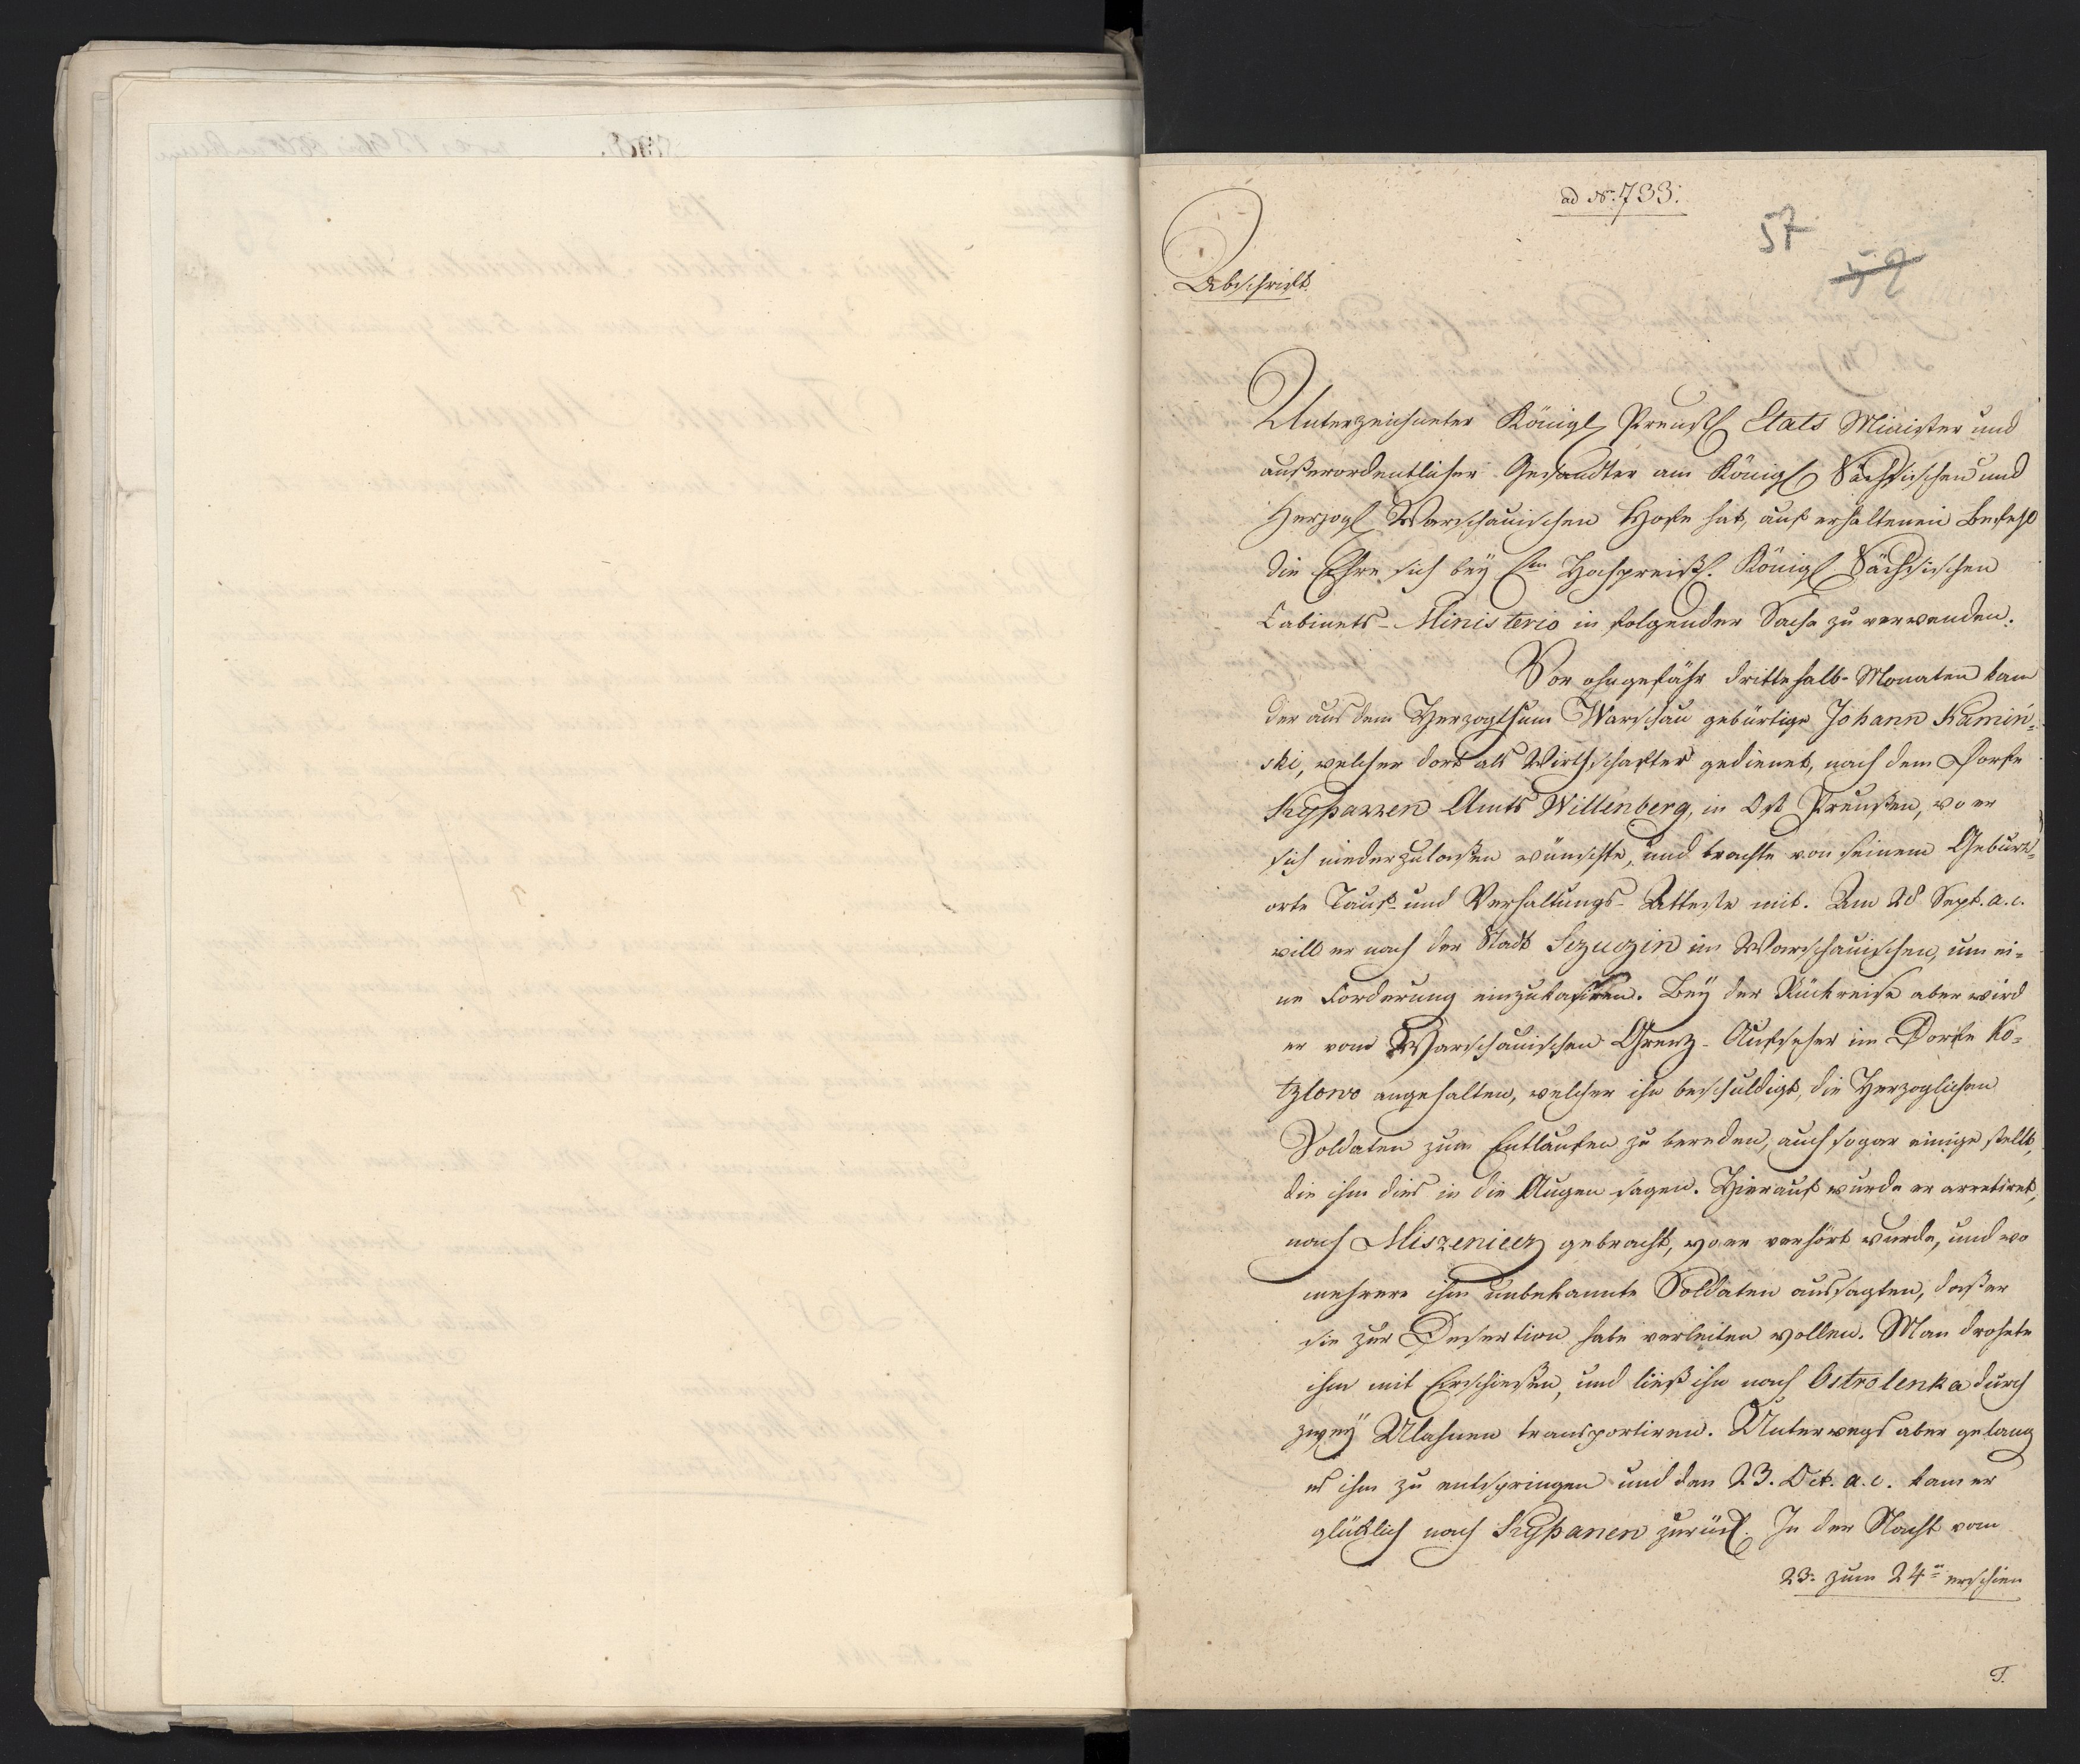 ad No. 733.
57
59
Abschrift.
Unterzeichneter Königl. Preußl. Etats Minister und
außerordentlicher Gesandter am Königl. Sächsischen und
Herzogl. Warschauischen Hofe hat, auf erhaltenen Befehl
die Ehre sich bey Em Hochpreißl. Königl. Sächsischen
Cabinets-Ministerio in folgender Sache zu verwenden.
Vor ohngefähr drittehalb-Monaten kam
der aus dem Herzogthum Warschau gebürtige Johann Kamiń=
ski, welcher dort als Wirthschafter gedienet, nach dem Dorfe
Amts Willenberg, in Ost Preußen, wo er
sich niederzulaßen wünschte, und brachte von seinem Geburts=
orte Tauf- und Verhaltungs-Atteste mit. Am 28 Sept. a. c.
will er nach der Stadt Sczuczin im Warschauischen, um ei=
ne Forderung einzukaßiren. Bey der Rückreise aber wird
er vom Warschauischen Grenz-Aufseher im Dorfe Ko=
tzlowo angehalten, welcher ihn beschuldigt, die Herzoglichen
Soldaten zum Entlaufen zu bereden, auch sogar einige stellt,
die ihm dies in die Augen sagen. Hierauf wurde er arretiret,
nach Miszeniecz gebracht, wo er verhört wurde, und wo
mehrere ihm unbekannte Soldaten aussagten, daß er
sie zur Desertion habe verleiten wollen. Man drohete
ihm mit Erschießen, und ließ ihn nach Ostrolenka durch
zwey Ulahnen transportiren. Unterwegs aber gelang
es ihm zu entspringen und den 23. Oct. a. c. kam er
glücklich nach zurück. In der Nacht vom
23. zum 24n erschien